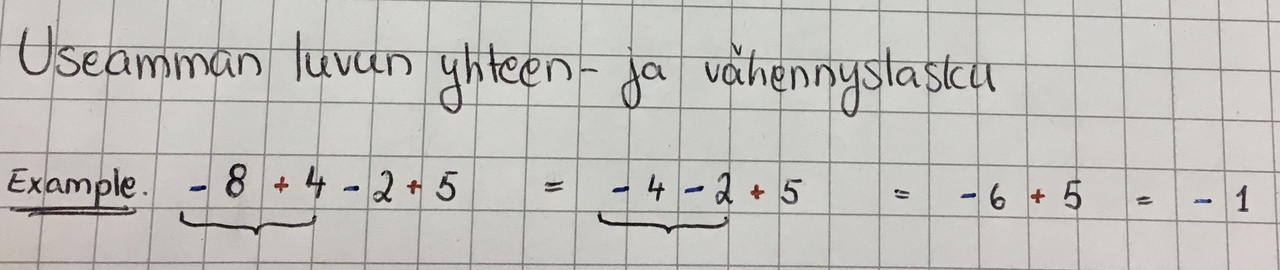 Useamman luvun yhteen- ja vähennyslasku
Example. - 8 + 4 - 2 + 5 = - 4 - 2 + 5 = - 6 + 5 = - 1